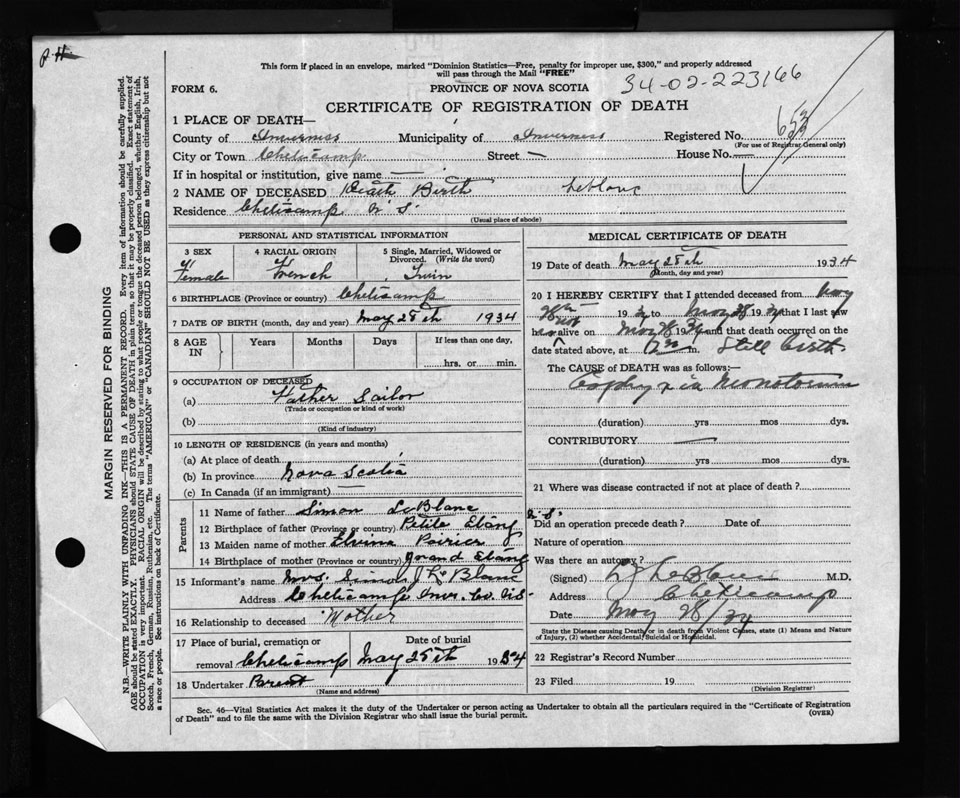 P.H.
This form if placed in an envelope, marked "Dominion Statistics—Free, penalty for improper use, $300," and properly addressed
will pass through the Mail "FREE"
34-02-223166
FORM 6.
PROVINCE OF NOVA SCOTIA
CERTIFICATE OF REGISTRATION OF DEATH
1 PLACE OF DEATH—
County of Inverness Municipality of Inverness Registered No. 653
(For use of Registrar General only)
City or Town Cheticamp Street — House No. —
If in hospital or institution, give name —
2 NAME OF DECEASED Death Birth Leblanc
Residence Cheticamp N S.
(Usual place of abode)
PERSONAL AND STATISTICAL INFORMATION
3 SEX
Female
4 RACIAL ORIGIN
French
5 Single, Married, Widowed or Divorced. (Write the word)
Twin
6 BIRTHPLACE (Province or country) Cheticamp
7 DATE OF BIRTH (month, day and year) May 28th 1934
8 AGE IN
Years Months Days If less than one day,
hrs. or min.
9 OCCUPATION OF DECEASED
(a) Father Sailor
(Trade or occupation or kind of work)
(b)
(Kind of industry)
10 LENGTH OF RESIDENCE (in years and months)
(a) At place of death
(b) In province Nova Scotia
(c) In Canada (if an immigrant) —
Parents
11 Name of father Simon LeBlanc
12 Birthplace of father (Province or country) Petite Etang
13 Maiden name of mother Elvina Poirier
14 Birthplace of mother (Province or country) Grand Etang
15 Informant's name Mrs. Simon J LeBlanc
Address Cheticamp Inv. Co. N.S.
16 Relationship to deceased Mother
17 Place of burial, cremation or removal Cheticamp
Date of burial May 28th 1934
18 Undertaker Parent
(Name and address)
MEDICAL CERTIFICATE OF DEATH
19 Date of death May 28th 1934
(Month, day and year)
20 I HEREBY CERTIFY that I attended deceased from May
28th 1934 to May 28 1934 that I last saw
h alive on May 28 1934 and that death occurred on the
not
date stated above, at Still birth
The CAUSE of DEATH was as follows:—
(duration) yrs mos dys.
CONTRIBUTORY —
(duration) yrs mos dys.
21 Where was disease contracted if not at place of death?
N.S.
Did an operation precede death? Date of
Nature of operation
Was there an autopsy?
(Signed) LeBlanc M.D.
Address Cheticamp
Date May 28/34
State the Disease causing Death or in death from Violent Causes, state (1) Means and Nature
of Injury, (2) whether Accidental, Suicidal or Homicidal.
22 Registrar's Record Number
23 Filed 19
(Division Registrar)
Sec. 46—Vital Statistics Act makes it the duty of the Undertaker or person acting as Undertaker to obtain all the particulars required in the "Certificate of Registration
of Death" and to file the same with the Division Registrar who shall issue the burial permit.
(OVER)
MARGIN RESERVED FOR BINDING
N.B.—WRITE PLAINLY WITH UNFADING INK—THIS IS A PERMANENT RECORD. Every item of information should be carefully supplied.
AGE should be stated EXACTLY. PHYSICIANS should STATE CAUSE OF DEATH in plain terms, so that it may be properly classified. Exact statement of
OCCUPATION is very important. RACIAL ORIGIN will be described by stating to what people or tongue the deceased person belonged, whether English, Irish,
Scotch, French, German, Russian, Ruthenian, etc. The terms "AMERICAN" or "CANADIAN" SHOULD NOT BE USED as they express citizenship but not
a race or people. See instructions on back of Certificate.